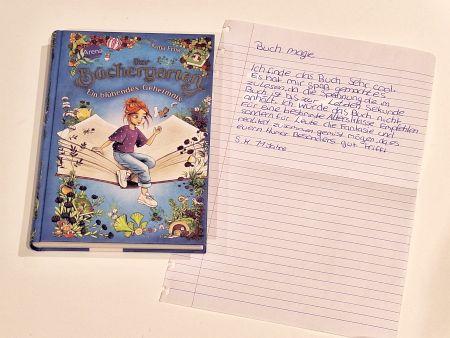 Arena
Katja Frixe
Der
Büchergarten
Ein blühendes Geheimnis
Buch magie
Ich finde das Buch Sehr cool.
Es hat mir Spaß gemacht es
zu lesen, da die Spannung die im
Buch ist bis zur letzten Sekunde
anhält. Ich würde das Buch nicht
für eine bestimmte Altersklasse Empfehlen
sondern für Leute die Fantasie und
realität zusammen gemixt mögen, da es
euern Humor Besonders gut trifft
S.K.